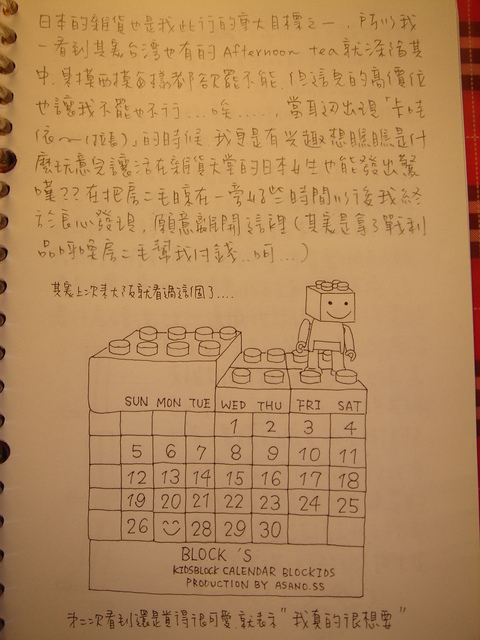 日本的雜貨也是我此行的重大目標之一，所以我
一看到其實台灣也有的 Afternoon tea 就深陷其
中，東摸西摸每樣都欲罷不能，但這兒的高價位
也讓我不罷也不行…唉……，當耳邊出現「卡哇
依～」的時候，我更是有興趣想瞧瞧是什
麼玩意兒讓活在雜貨天堂的日本女生也能發出驚
嘆？？在把房二毛晾在一旁好些時間以後我終
於良心發現，願意離開這裡（其實是拿了戰利
品呼喚房二毛幫我付錢…呵…）
其實上次來大阪就看過這個了….
SUN MON TUE WED THU FRI SAT
1 2 3 4
5 6 7 8 9 10 11
12 13 14 15 16 17 18
19 20 21 22 23 24 25
26 28 29 30
BLOCK 'S
KIDSBLOCK CALENDAR BLOCKIDS
PRODUCTION BY ASANO.SS
第二次看到還是覺得很可愛 就表示 "我真的很想要"